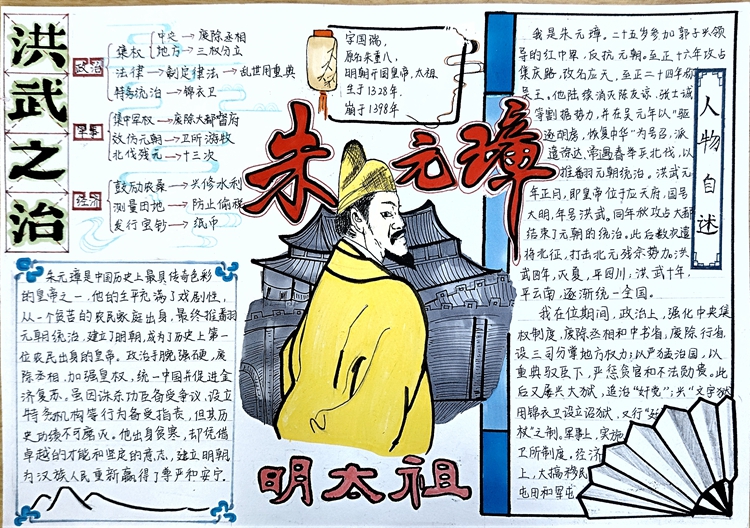 洪武之治
政治
集权
中央→废除丞相
地方→三权分立
法律→制定律法→乱世用重典
特务统治→锦衣卫
军事
集中军权→废除大都督府
效仿元朝→卫所游牧
北伐残元→十三次
经济
鼓励农桑→兴修水利
测量田地→防止偷税
发行宝钞→纸币
字国瑞,
原名朱重八,
明朝开国皇帝,太祖
生于1328年.
崩于1398年
朱元璋
朱元璋是中国历史上最具传奇色彩
的皇帝之一.他的生平充满了戏剧性,
从一个贫苦的农民家庭出身,最终推翻
元朝统治,建立了明朝,成为了历史上第一
位农民出身的皇帝。政治手腕强硬,废
除丞相,加强皇权,统一中国并促进经
济复苏。虽因诛杀功臣备受争议、设立
特务机构等行为备受指责,但其历
史功绩不可磨灭。他出身贫寒,却凭借
卓越的才能和坚定的意志,建立明朝
为汉族人民重新赢得了尊严和安宁.
明太祖
人物自述
我是朱元璋,二十五岁参加郭子兴领
导的红巾军,反抗元朝。至正十六年攻占
集庆路,改名应天,至正二十四年称
吴王。他陆续消灭陈友谅、张士诚
等割据势力,并在吴元年以“驱
逐胡虏,恢复中华”为号召,派
遣徐达、常遇春举兵北伐,以
推翻元朝统治。洪武元
年正月,即皇帝位于应天府,国号
大明,年号洪武。同年秋攻占大都
结束了元朝的统治。此后数次遣
将北征,打击北元残余势力,洪
武四年,灭夏,平四川,洪武十年,
平云南,逐渐统一全国。
我在位期间,政治上,强化中央集
权制度,废除丞相和中书省,废除行省,
设三司分掌地方权力;以严猛治国,以
重典驭臣下,严惩贪官和不法勋贵。此
后又屡兴大狱,追治“奸党”;兴“文字狱
用锦衣卫设立诏狱,又行
权”之制,军事上,实施
卫所制度。经济
上,大搞移民
屯田和军屯